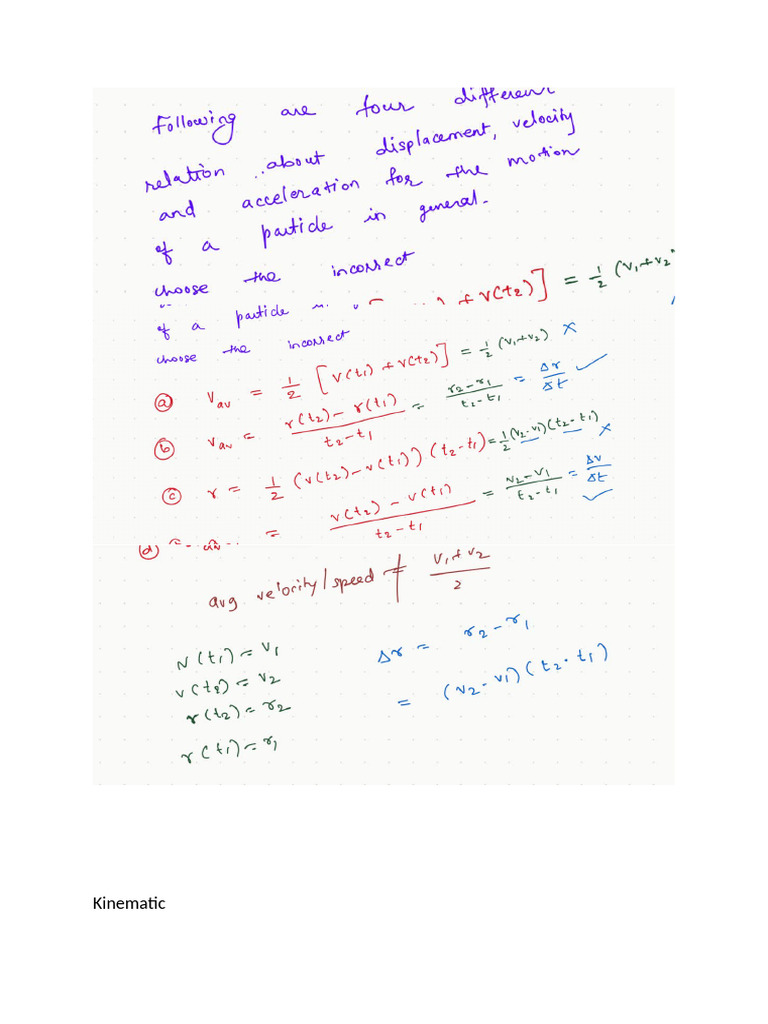 Following are four different
relation about displacement, velocity
and acceleration for the motion
of a particle in general.
choose the incorrect
+ v(t2)] = 1/2 (v1+v2
of a particle
choose the incorrect
(a) Vav = 1/2 [v(t1) + v(t2)] = 1/2 (v1+v2) ×
(b) Vav = r(t2) - r(t1) / t2-t1 = r2-r1 / t2-t1 = Δr/Δt ✓
(c) r = 1/2 (v(t2)-v(t1)) (t2-t1) = 1/2 (v2-v1)(t2-t1) ×
(d) = v(t2) - v(t1) / t2-t1 = v2-v1 / t2-t1 = Δv/Δt ✓
avg velocity/speed ≠ v1+v2 / 2
v(t1) = v1
v(t2) = v2
r(t2) = r2
r(t1) = r1
Δr = r2-r1
= (v2-v1)(t2-t1)
Kinematic